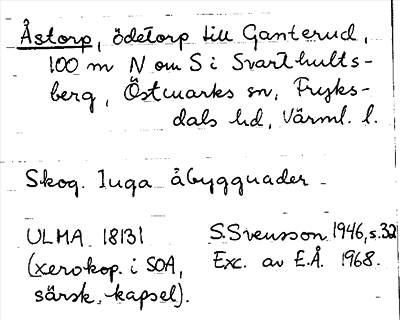 Åstorp, ödetorp till Ganterud,
100 m N om S i Svarthults-
berg, Östmarks sn, Fryks-
dals hd, Värml. l.
Skog. Inga åbyggnader
ULMA 18131 S. Svensson 1946, s. 32
(xerokop. i SOA, Exc. av E.Å. 1968.
särsk. kapsel).